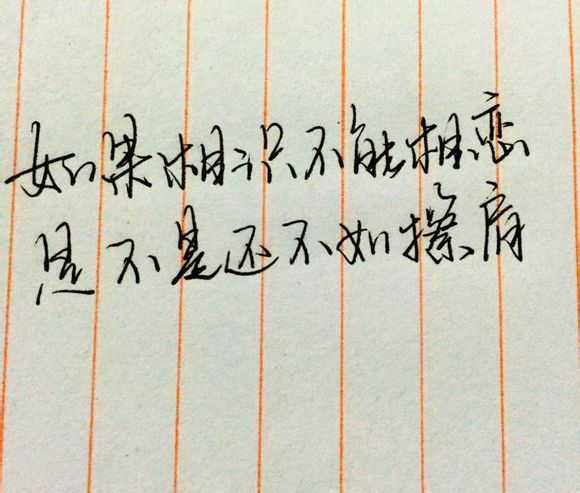 如果相识不能相恋
是不是还不如擦肩